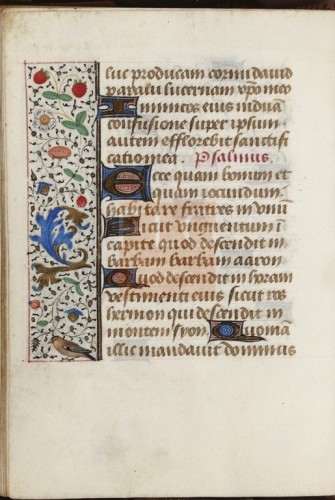 luc producam cornu david
paravi lucernam xpo meo
Inimicos eius induā
confusione super ipsum
autem efflorebit sanctifi
catio mea. Psalmus.
Ecce quam bonum et
quam iocundum
habitare fratres in unū
Sicut unguentum ī
capite quod descendit in
barbam barbam aaron
Quod descendit in horam
vestimenti eius sicut ros
hermon qui descendit in
montem syon. Quoniā
illic mandavit dominus